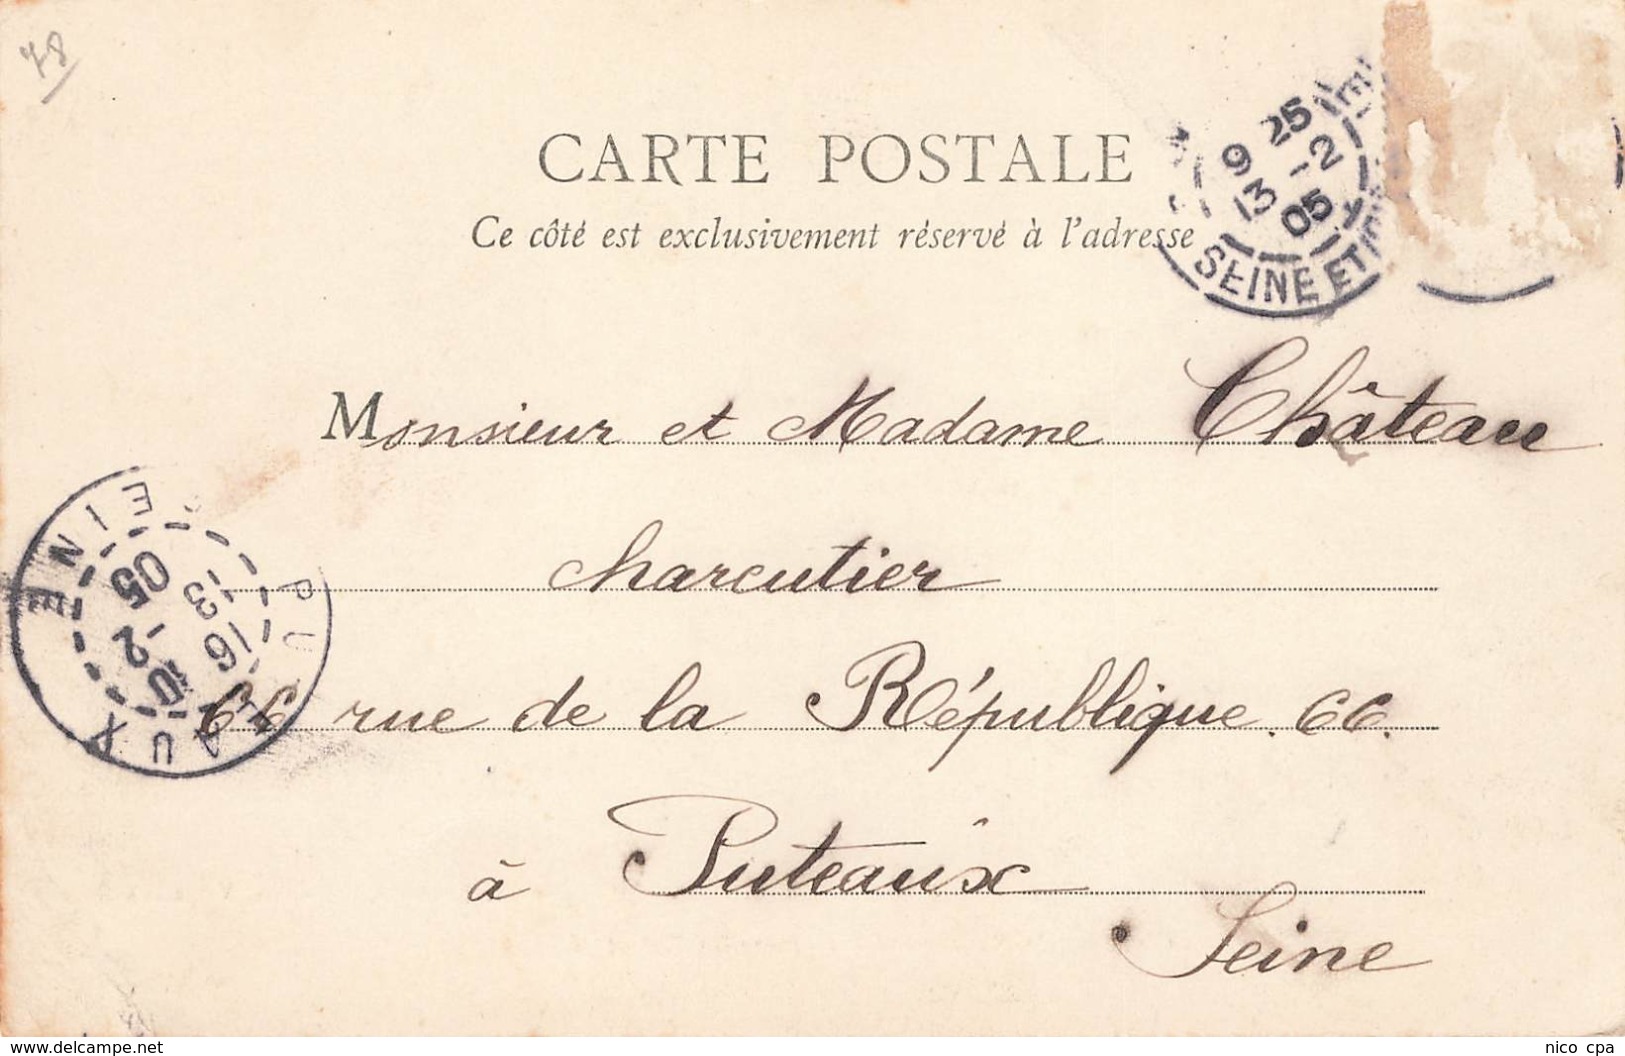 78
CARTE POSTALE
Ce côté est exclusivement réservé à l'adresse
9 25
13 -2
05
SEINE ET
Monsieur et Madame Château
charcutier
66 rue de la République. 66.
à Puteaux
Seine
PUTEAUX
SEINE
16
13 -2
05
www.delcampe.net
nico cpa